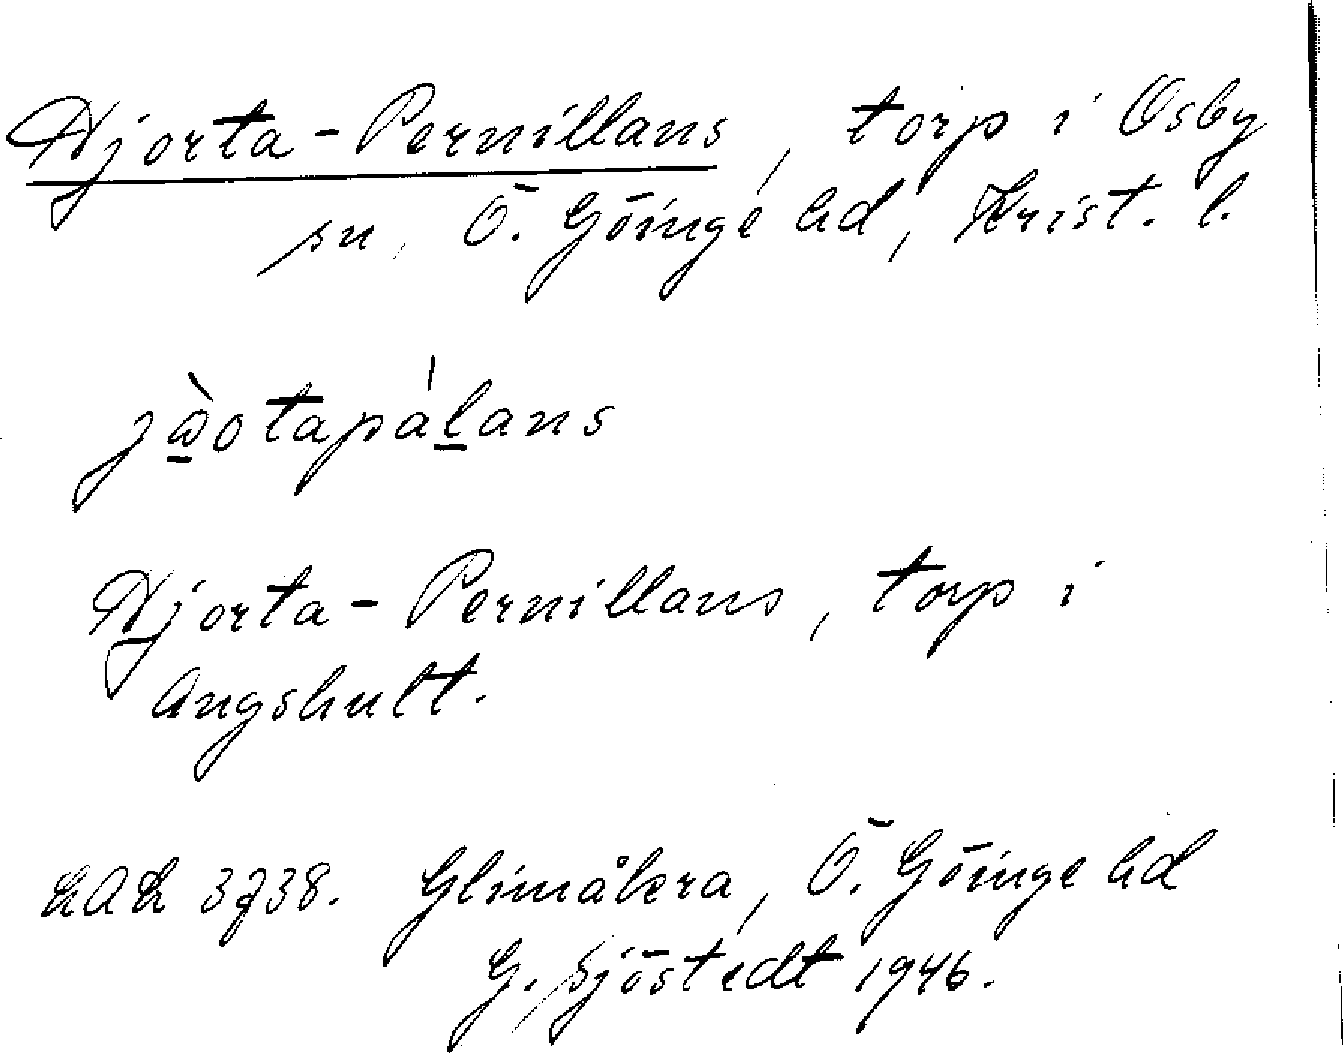 Hjorta-Pernillans, torp i Osby
sn, Ö. Göinge hd, Krist. l.
Hjorta-Pernillans, torp i
Angshult.
LAL 3738. Glimåkra, Ö. Göinge hd
G. Sjöstedt 1946.